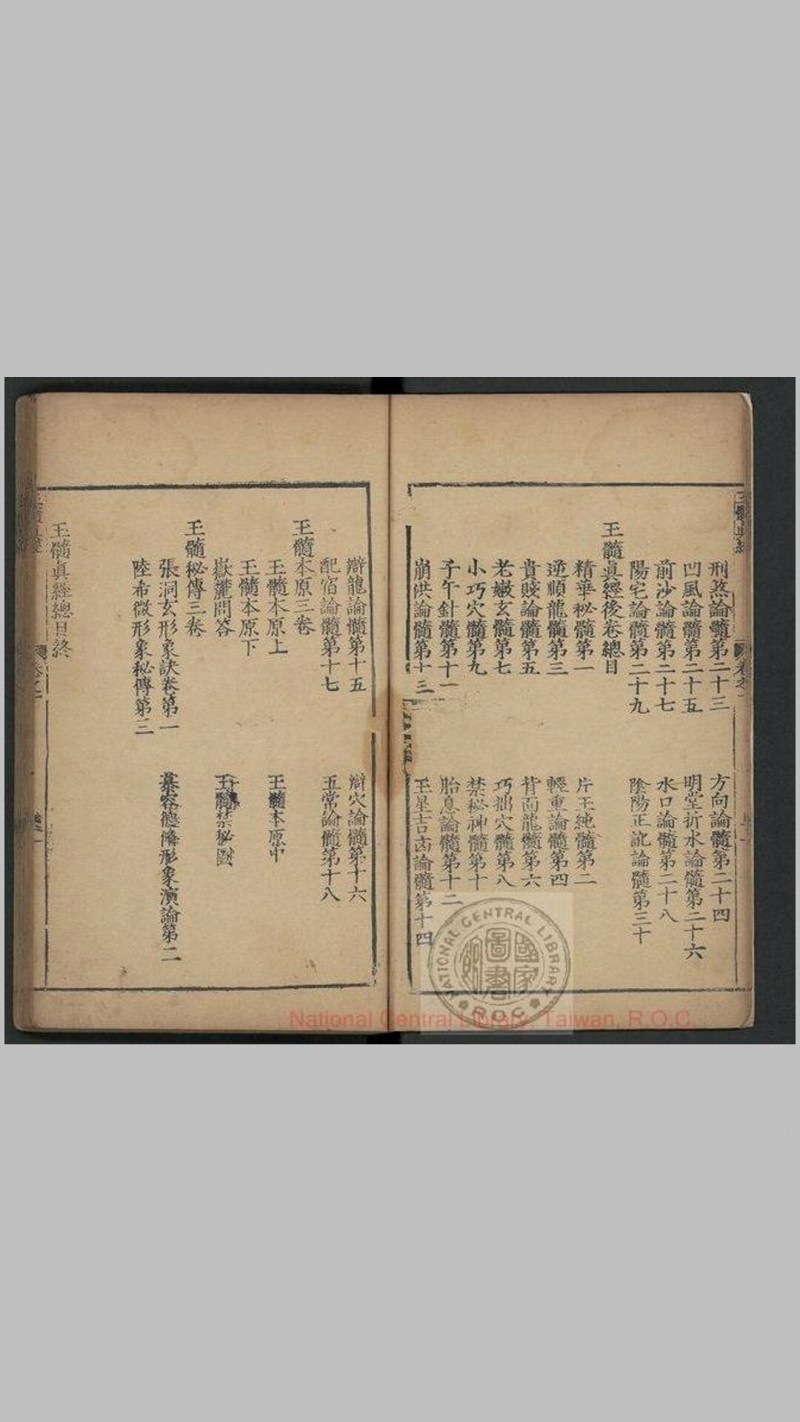 刑煞論髓第二十三 方向論髓第二十四
凹風論髓第二十五 明堂折水論髓第二十六
前沙論髓第二十七 水口論髓第二十八
陽宅論髓第二十九 陰陽正訛論髓第三十
玉髓眞經後卷總目
精華秘髓第一 片玉純髓第二
逆順龍髓第三 輕重論髓第四
貴賤論髓第五 背面龍髓第六
老嫩玄髓第七 巧拙穴髓第八
小巧穴髓第九 禁秘神髓第十
子午針髓第十一 胎息論髓第十二
崩洪論髓第十三 玉星吉凶論髓第十四
辯龍論髓第十五 辯穴論髓第十六
配宿論髓第十七 五常論髓第十八
玉髓本原三卷
玉髓本原上 玉髓本原中
玉髓本原下
嶽麓問答 玉髓禁秘圖
玉髓秘傳三卷
張洞玄形象訣卷第一 慕容德脩形象演論第二
陸布微形象秘傳第三
玉髓眞經總目終
NATIONAL CENTRAL LIBRARY
國家圖書館
R.O.C.
National Central Library, Taiwan, R.O.C